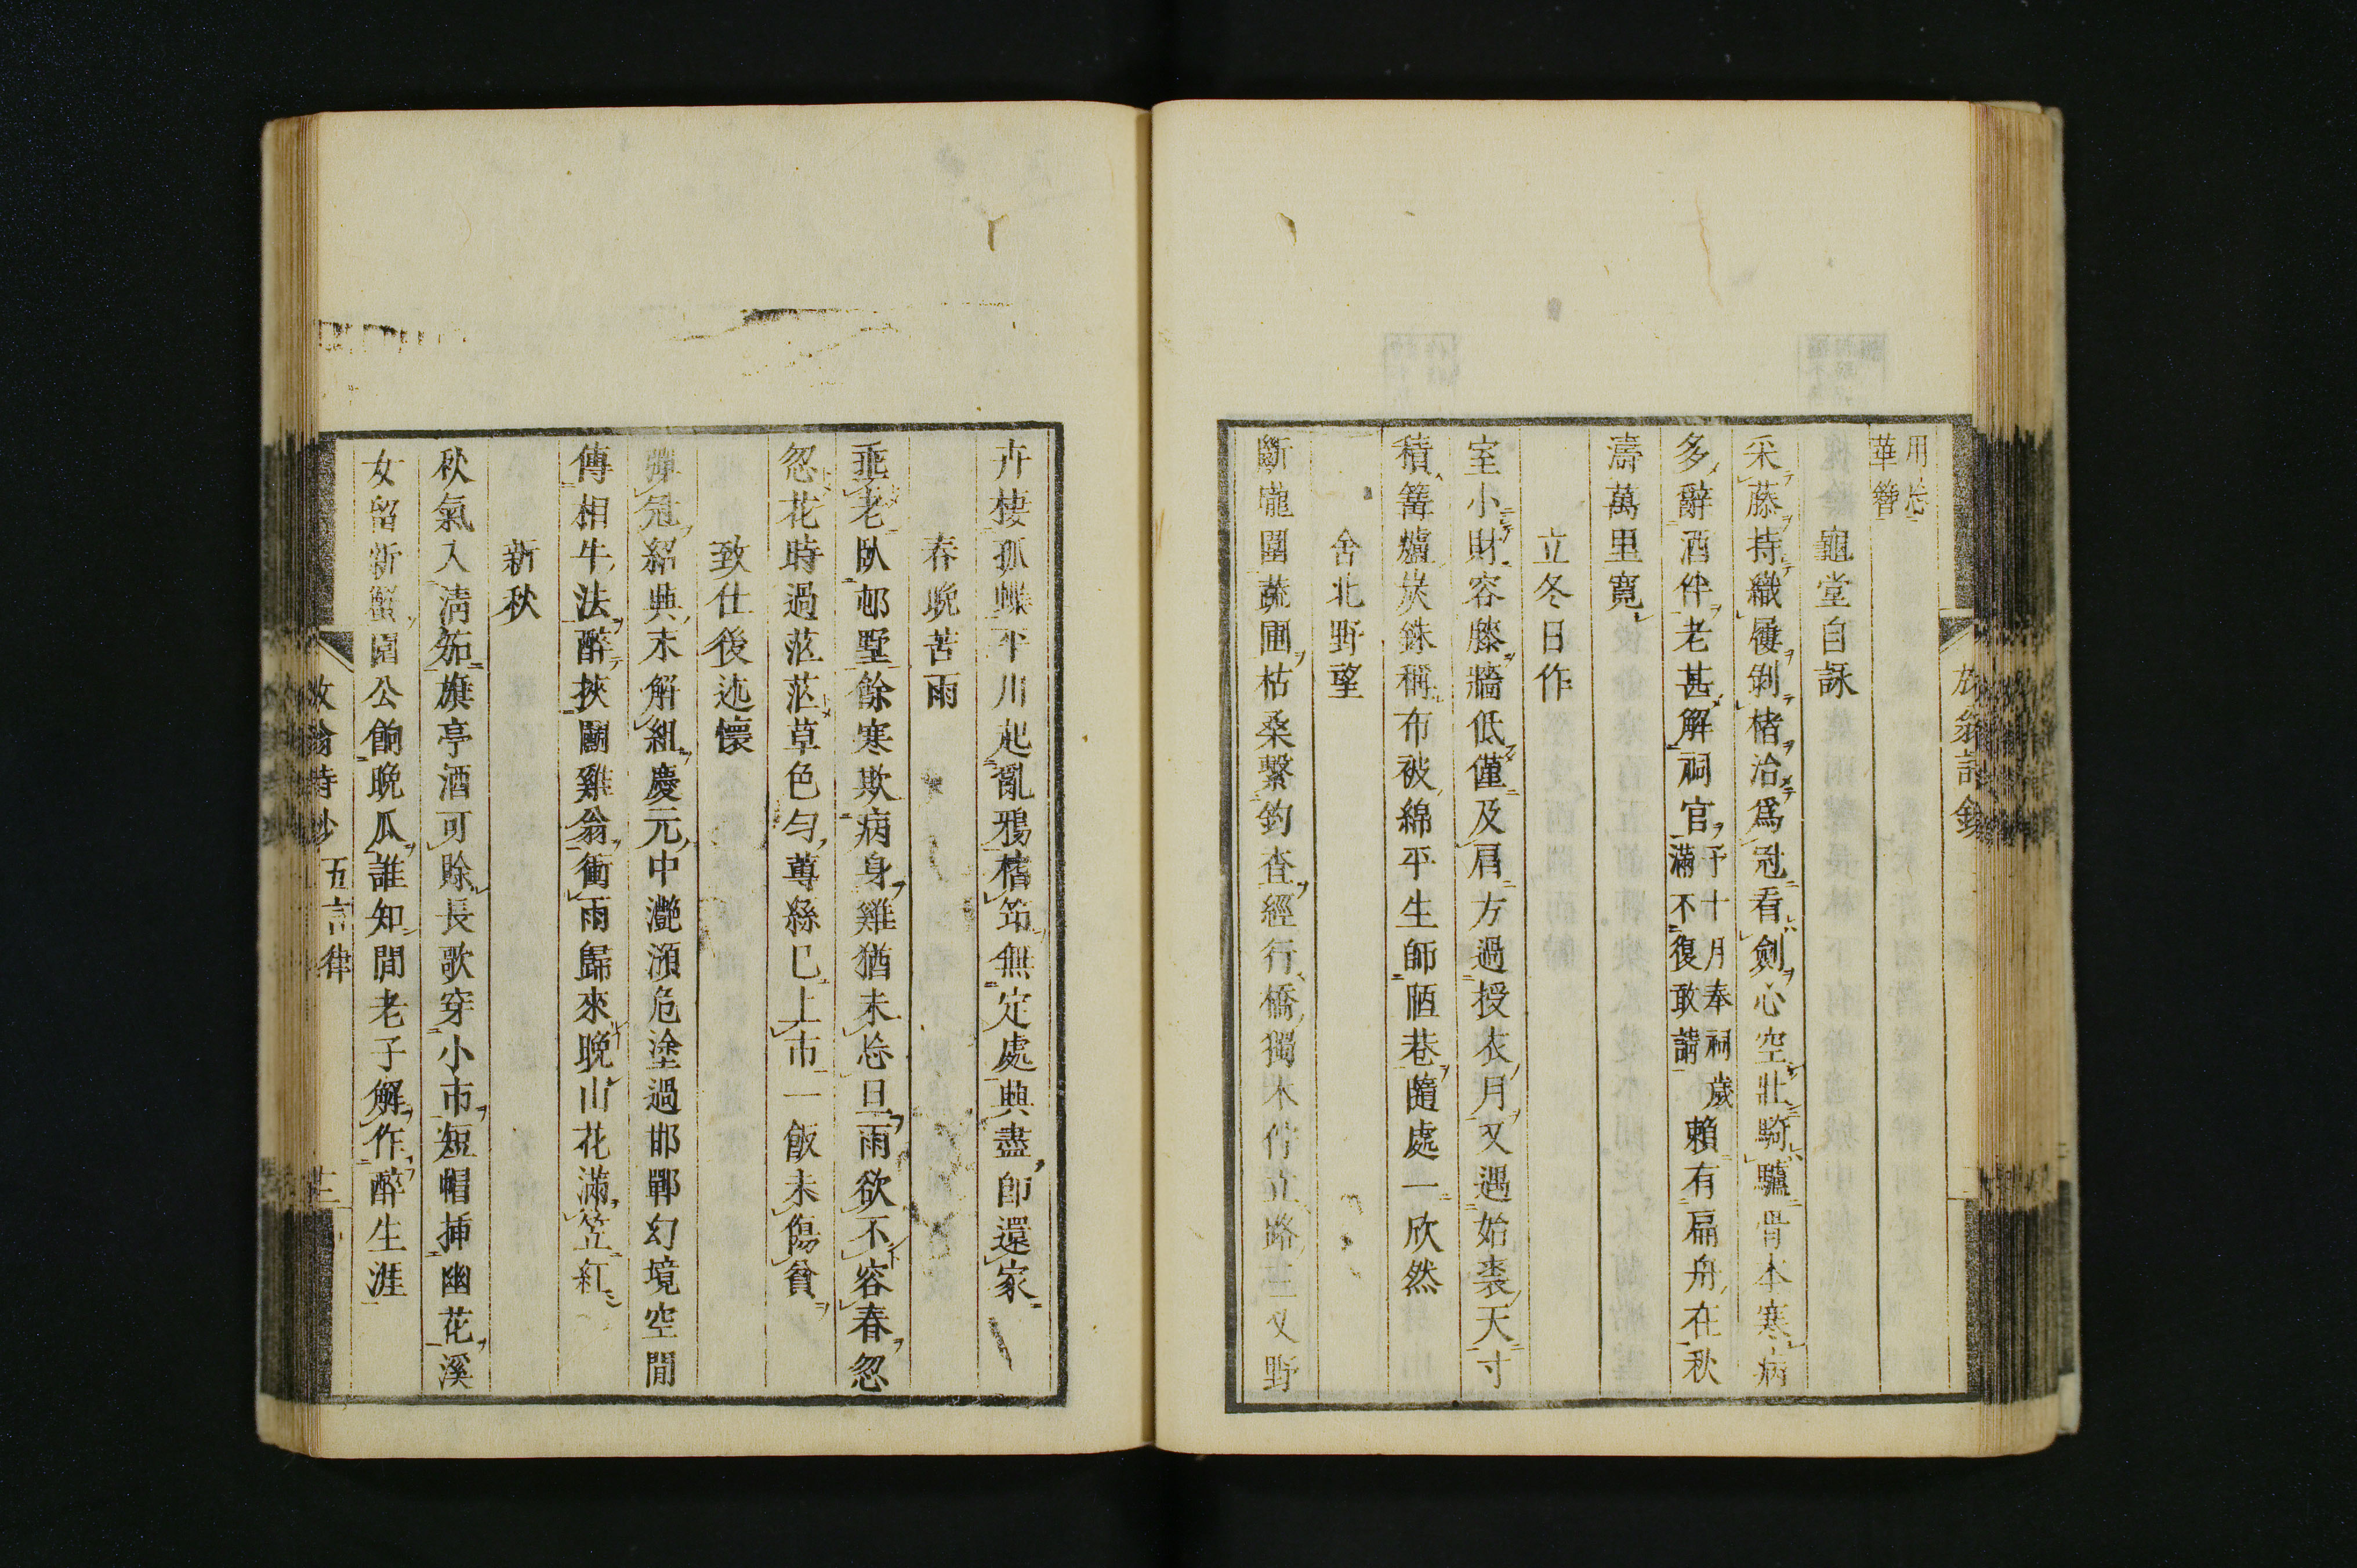 用忘
華簪
龜堂自詠
采藤持織屨剝楮治爲冠看劍心空壯騎驢骨本寒病
多辭酒伴老甚解祠官予十月奉祠歲滿不復敢請賴有扁舟在秋
濤萬里寬
立冬日作
室小財容膝牆低僅及肩方過授衣月又遇始裘天寸
積篝爐炭銖稱布被綿平生師陋巷隨處一欣然
舍北野望
斷隴圍蔬圃枯桑繫釣查經行橋獨木佇立路三叉野
放翁詩鈔
卉棲孤蝶平川起亂鴉榰筇無定處興盡卽還家
春晚苦雨
垂老臥邨墅餘寒欺病身雞猶未忘旦雨欲不容春忽
忽花時過茫茫草色勻蓴絲已上市一飯未傷貧
致仕後述懷
彈冠紹興末解組慶元中灔澦危塗過邯鄲幻境空閒
傳相牛法醉挾鬭雞翁衝雨歸來晚山花滿笠紅
新秋
秋氣入淸笳旗亭酒可賒長歌穿小市短帽揷幽花溪
女留新蟹園公餉晚瓜誰知閒老子解作醉生涯
放翁詩鈔 五言律 廿一